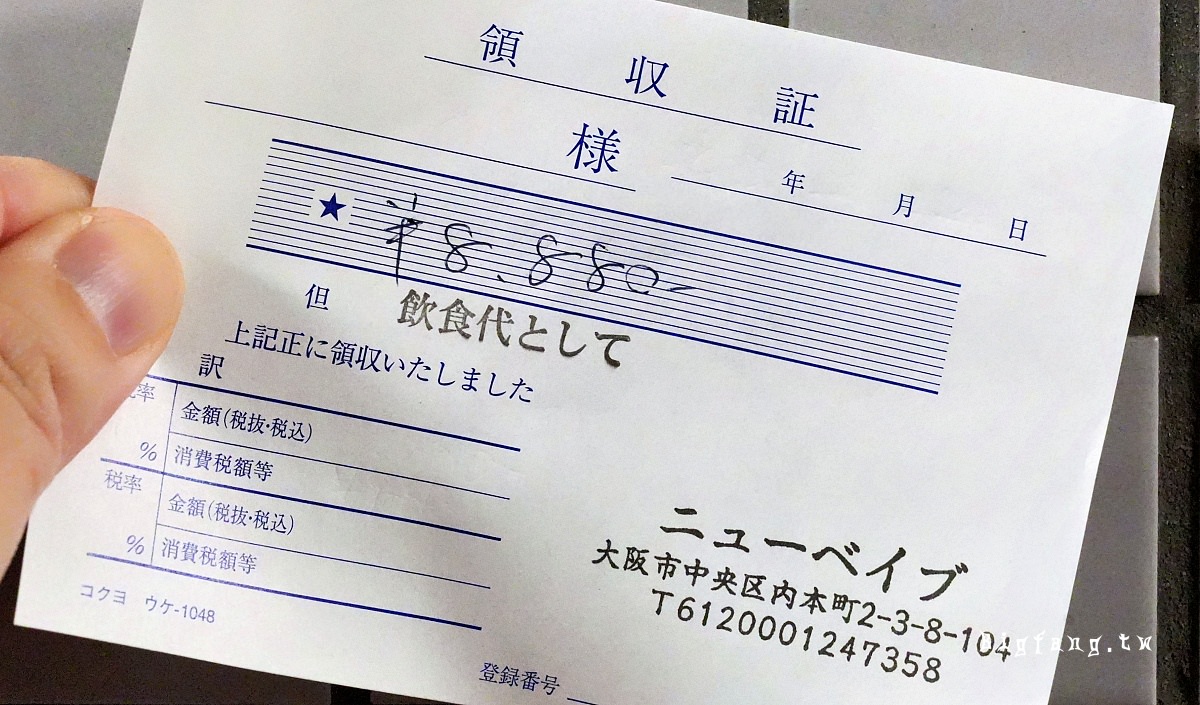 領収証
様 年 月 日
★ ¥8,880-
但 飲食代として
上記正に領収いたしました
訳
税率 % 金額(税抜・税込)
消費税額等
税率 % 金額(税抜・税込)
消費税額等
コクヨ ウケ-1048
ニューベイブ
大阪市中央区内本町2-3-8-104
T6120001247358
登録番号
bigfang.tw